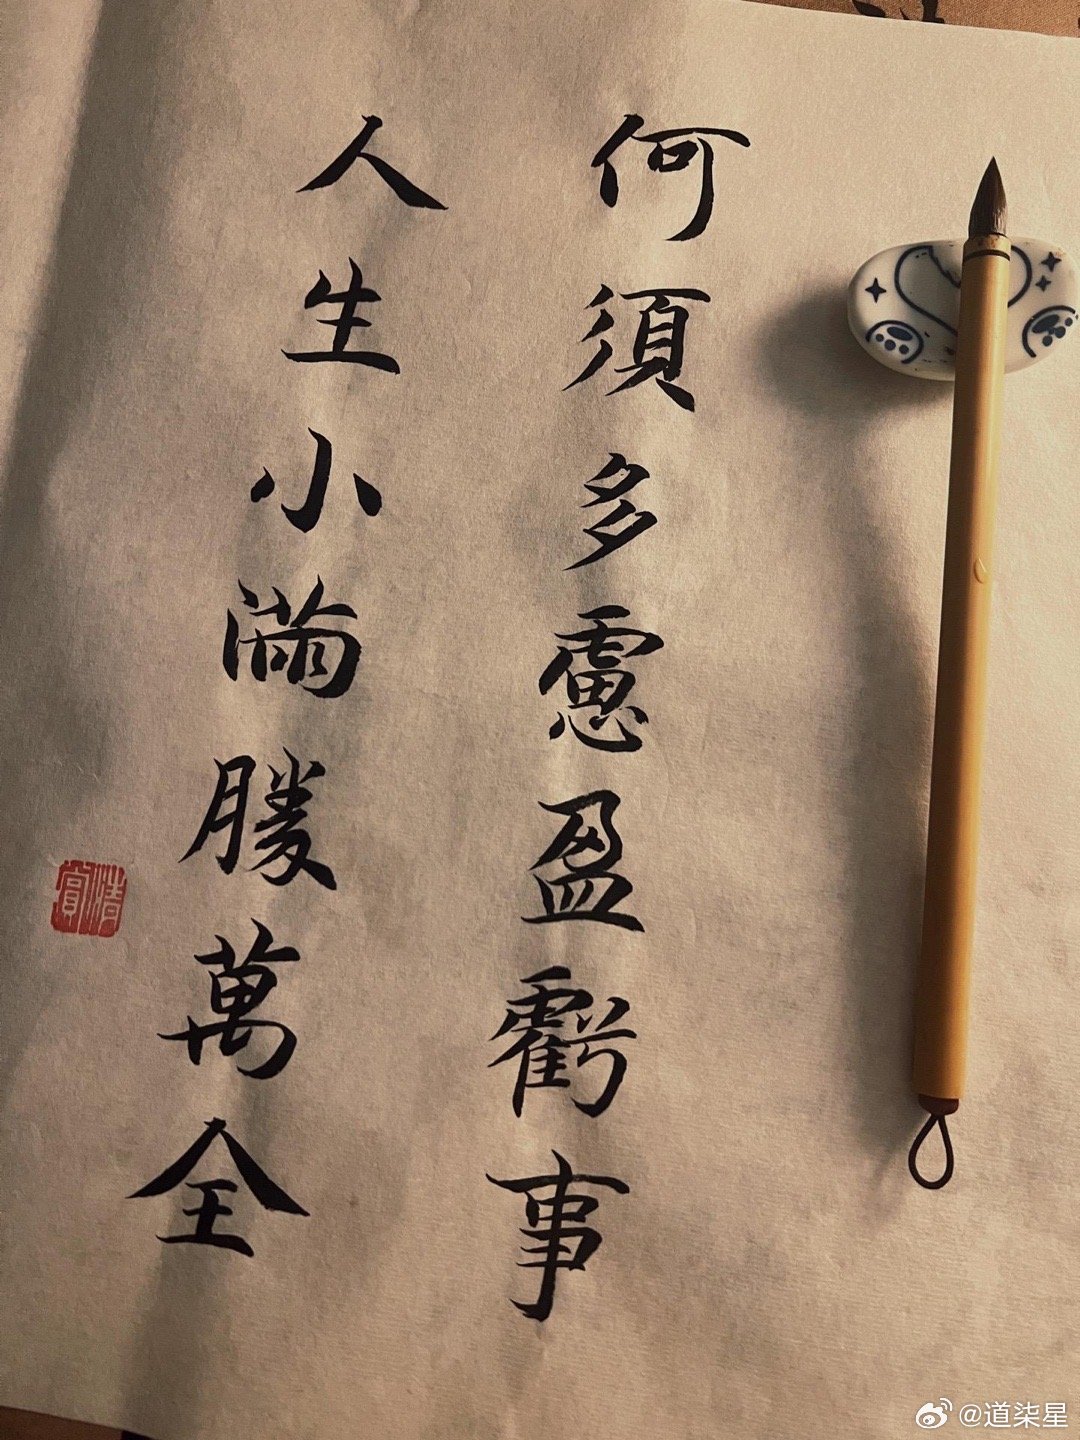 何須多慮盈虧事
人生小滿勝萬全
@道柒星